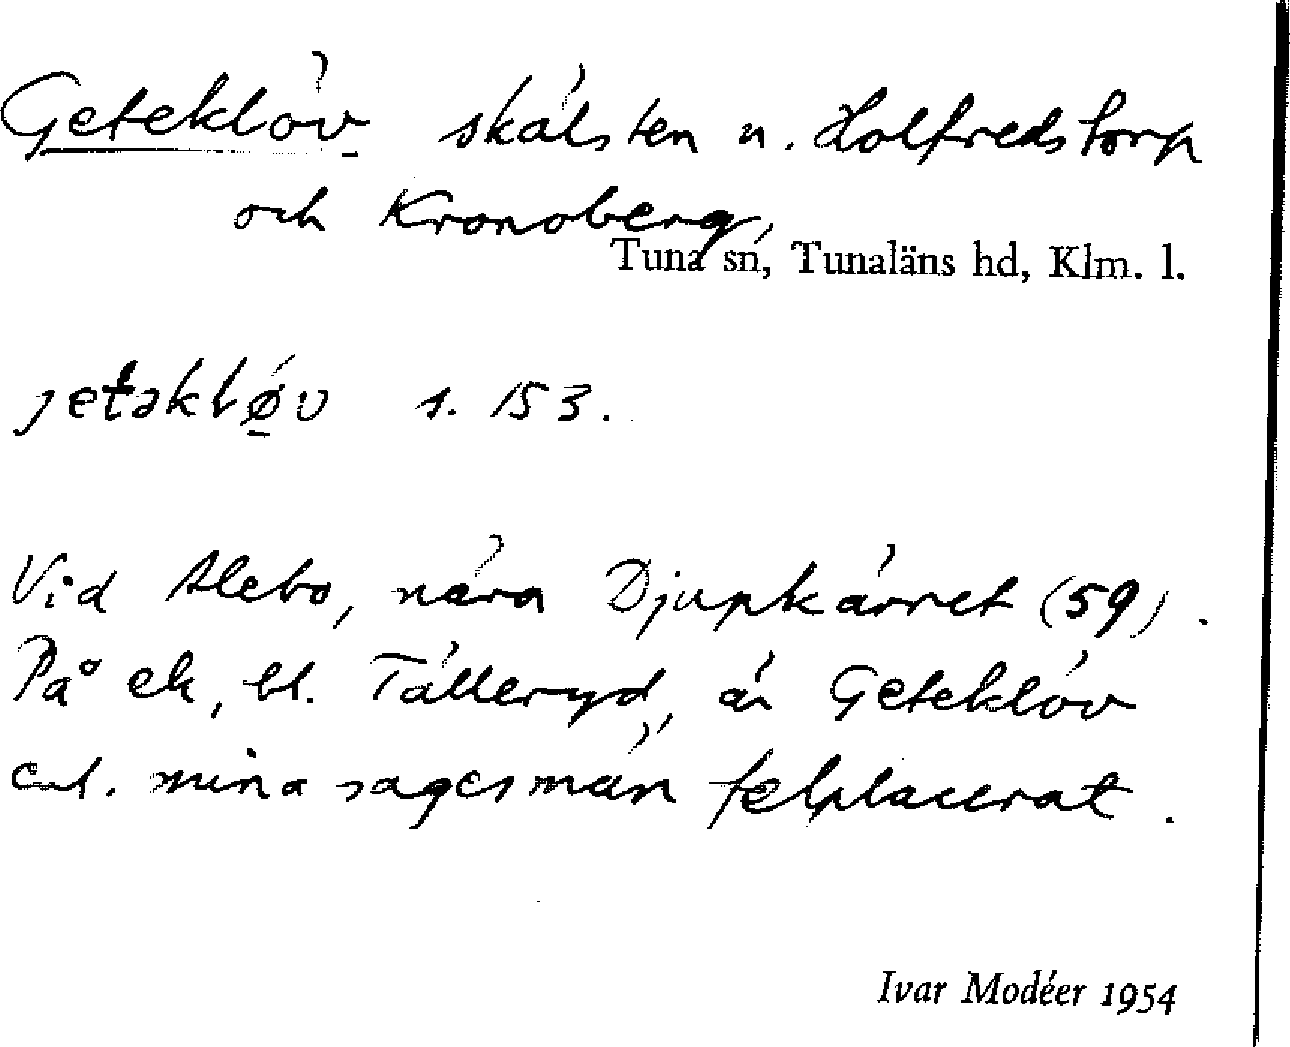 Geteklöv skälsten n. Holfredstorp
och Kronoberg,
Tuna sn, Tunaläns hd, Klm. l.
jetəkløv s. 153.
Vid Alebo, nära Djupkärret (59).
På ek, bl. Tälleryd, är Geteklöv
enl. mina sagesmän felplacerat.
Ivar Modéer 1954